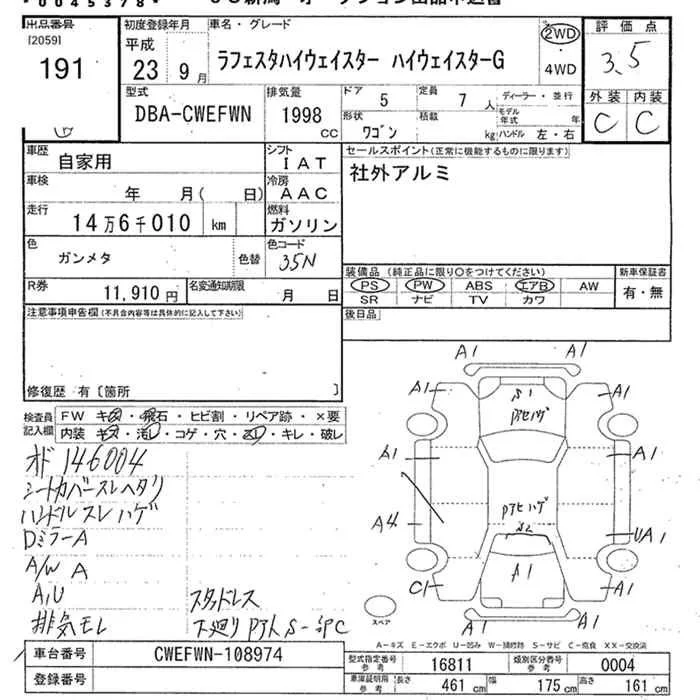 *0045378*
出品番号
[2059]
191
初度登録年月
平成
23 9月
車名・グレード
ラフェスタハイウェイスター ハイウェイスターG
2WD
・
4WD
評価点
3.5
外装 内装
C C
型式
DBA-CWEFWN
排気量
1998
CC
ドア 5
定員 7人
ディーラー・並行
モデル年式 年
形状 ワゴン
積載 kg
ハンドル 左・右
車歴
自家用
シフト
IAT
車検
年 月( 日)
冷房
AAC
走行
14万6千010 km
燃料
ガソリン
色
ガンメタ
色替
色コード
35N
R券
11,910円
名変通知期限
月 日
セールスポイント(正常に機能するものに限ります)
社外アルミ
装備品(純正品に限り○をつけてください)
新車保証書
PS PW ABS エアB AW
有・無
SR ナビ TV カワ
後日品
注意事項申告欄(不具合内容等は具体的に記入して下さい)
修復歴 有〔箇所 〕
検査員記入欄
FW キズ・飛石・ヒビ割・リペア跡・×要
内装 キズ・汚レ・コゲ・穴・凹・キレ・破レ
オド 146004
シートカバースレヘタリ
ハンドルスレハゲ
DミラーA
A/W A
A,U
排気モレ
スタッドレス
A1 A1
A1 A1
S1
A1 A1
A4
UA1
A1
C1 A1
A1 A1
スペア
A-キズ E-エクボ U-凹み W-補修跡 S-サビ C-腐食 XX-交換済
車台番号
CWEFWN-108974
登録番号
型式指定番号 参考
16811
類別区分番号 参考
0004
車庫証明用 参考
長さ 461cm
幅 175cm
高さ 161cm